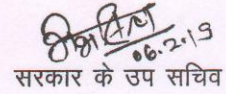 06.2.19
सरकार के उप सचिव